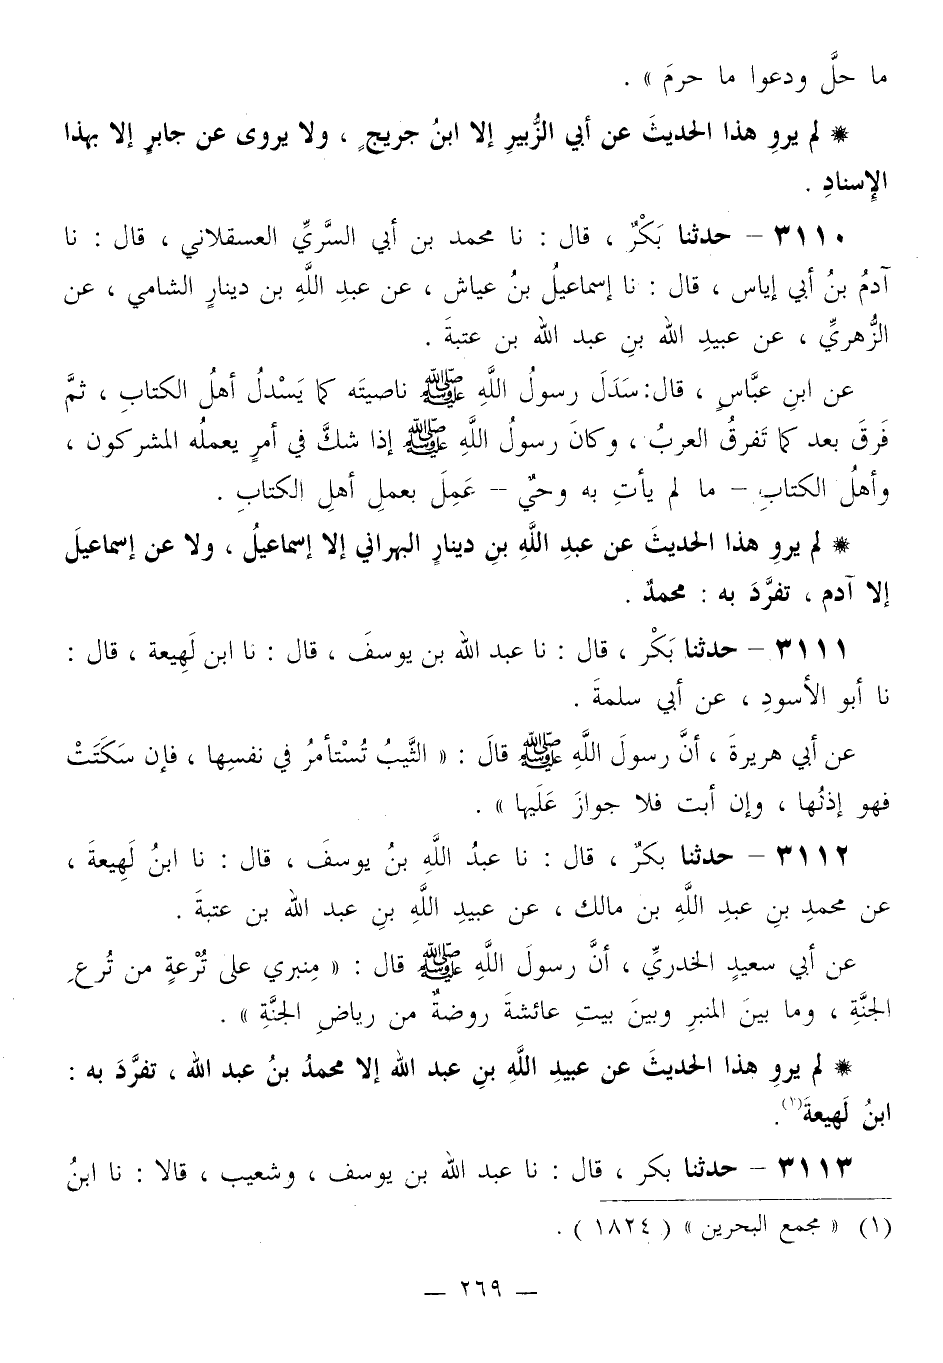 ما حلَّ ودعوا ما حرمَ » .
✵ لم يروِ هذا الحديثَ عن أبي الزُّبيرِ إلا ابنُ جريجٍ ، ولا يروى عن جابرٍ إلا بهذا
الإِسنادِ .
٣١١٠ – حدثنا بَكْرٌ ، قال : نا محمد بن أبي السَّريِّ العسقلاني ، قال : نا
آدمُ بنُ أبي إياس ، قال : نا إسماعيلُ بنُ عياش ، عن عبدِ اللَّهِ بن دينارٍ الشامي ، عن
الزُّهريِّ ، عن عبيدِ الله بنِ عبد الله بن عتبةَ .
عن ابنِ عبَّاسٍ ، قال: سَدَلَ رسولُ اللَّهِ ﷺ ناصيتَه كما يَسْدلُ أهلُ الكتابِ ، ثمَّ
فَرقَ بعد كما تَفرقُ العربُ ، وكانَ رسولُ اللَّهِ ﷺ إذا شكَّ في أمرٍ يعملُه المشركون ،
وأهلُ الكتابِ – ما لم يأتِ به وحيٌ – عَمِلَ بعملِ أهلِ الكتابِ .
✵ لم يروِ هذا الحديثَ عن عبدِ اللَّهِ بنِ دينارٍ البهراني إلا إسماعيلُ ، ولا عن إسماعيلَ
إلا آدم ، تفرَّدَ به : محمدٌ .
٣١١١ – حدثنا بَكْر ، قال : نا عبد الله بن يوسفَ ، قال : نا ابن لَهِيعة ، قال :
نا أبو الأسودِ ، عن أبي سلمةَ .
عن أبي هريرةَ ، أنَّ رسولَ اللَّهِ ﷺ قالَ : « الثَّيبُ تُسْتأمرُ في نفسِها ، فإن سَكَتَتْ
فهو إذنُها ، وإن أبت فلا جوازَ عَلَيها » .
٣١١٢ – حدثنا بكرٌ ، قال : نا عبدُ اللَّهِ بنُ يوسفَ ، قال : نا ابنُ لَهِيعةَ ،
عن محمدِ بنِ عبدِ اللَّهِ بن مالك ، عن عبيدِ اللَّهِ بنِ عبد الله بن عتبةَ .
عن أبي سعيدٍ الخدريِّ ، أنَّ رسولَ اللَّهِ ﷺ قال : « مِنبري على تُرْعةٍ من تُرعِ
الجنَّةِ ، وما بينَ المنبرِ وبينَ بيتِ عائشةَ روضةٌ من رياضِ الجنَّةِ » .
✵ لم يروِ هذا الحديثَ عن عبيدِ اللَّهِ بنِ عبد الله إلا محمدُ بنُ عبد الله ، تفرَّدَ به :
ابنُ لَهِيعةَ(١).
٣١١٣ – حدثنا بكر ، قال : نا عبد الله بن يوسف ، وشعيب ، قالا : نا ابنُ
(١) « مجمع البحرين » ( ١٨٢٤ ) .
— ٢٦٩ —